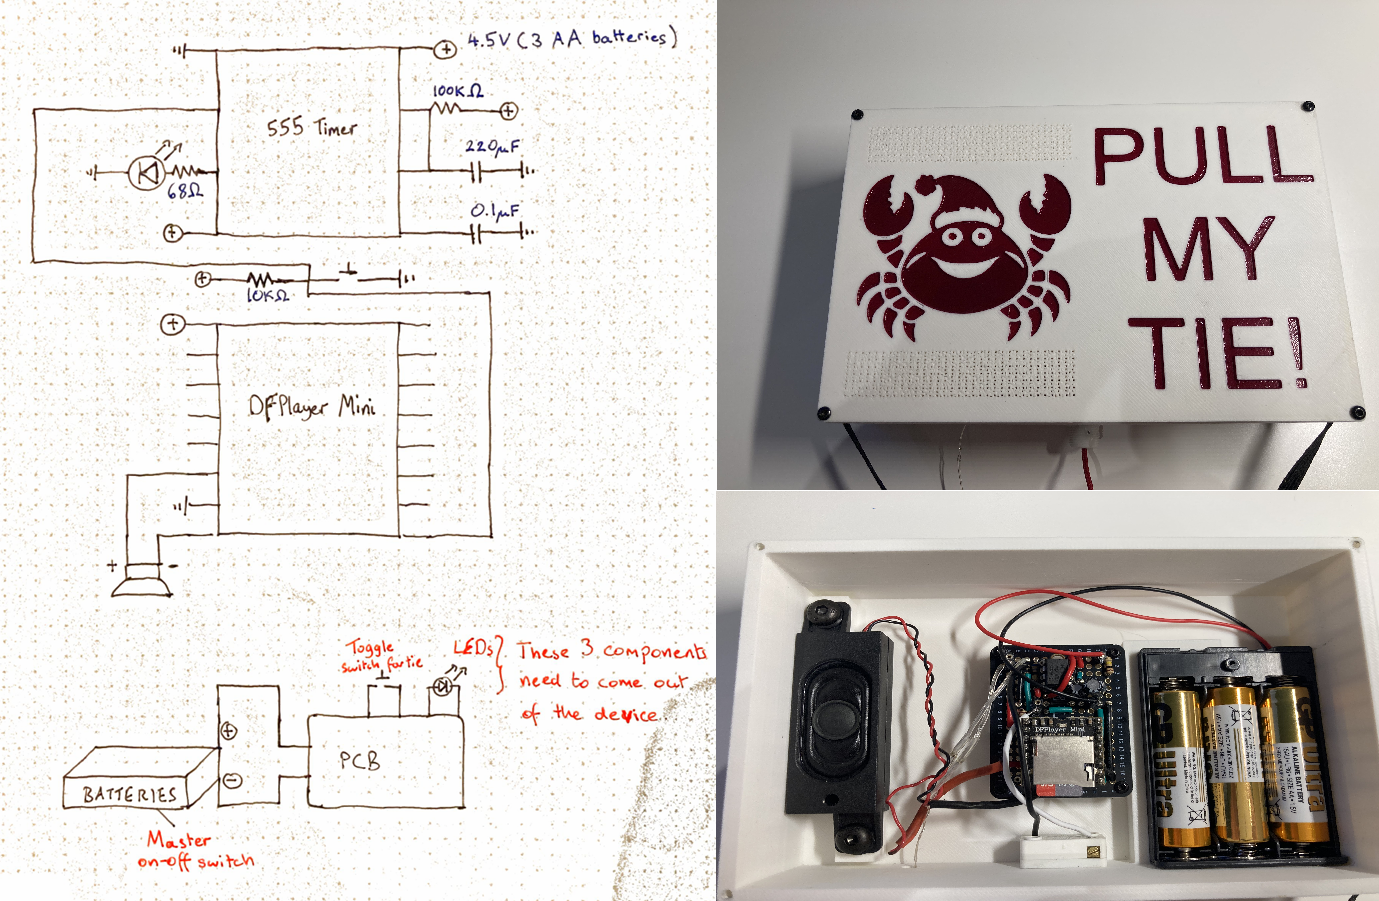 4.5V (3 AA batteries)
100KΩ
555 Timer
220µF
68Ω
0.1µF
10KΩ
DFPlayer Mini
+ -
Toggle
switch for tie
LEDs
These 3 components
need to come out
of the device
PCB
BATTERIES
Master
on-off switch
PULL
MY
TIE!
DFPlayer Mini
GP Ultra
ALKALINE BATTERY